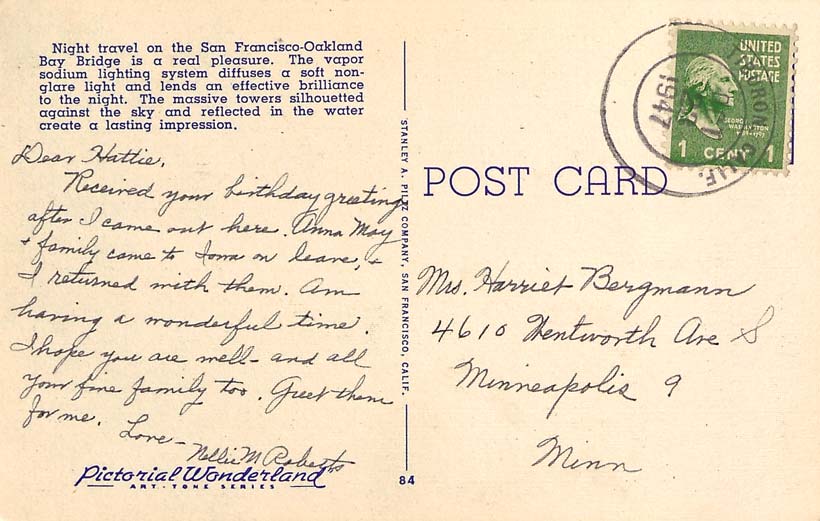 Night travel on the San Francisco-Oakland
Bay Bridge is a real pleasure. The vapor
sodium lighting system diffuses a soft non-
glare light and lends an effective brilliance
to the night. The massive towers silhouetted
against the sky and reflected in the water
create a lasting impression.
Dear Hattie,
Received your birthday greeting
after I came out here. Anna May
+ family came to Iowa on leave, +
I returned with them. Am
having a wonderful time.
I hope you are well - and all
your fine family too. Greet them
for me.
Love -
Nellie M Roberts
Pictorial Wonderland
ART-TONE SERIES
STANLEY A. PILTZ COMPANY, SAN FRANCISCO, CALIF.
84
POST CARD
UNITED
STATES
POSTAGE
GEORGE
WASHINGTON
1 CENT 1
1947
CALIF.
Mrs. Harriet Bergmann
4610 Wentworth Ave S
Minneapolis 9
Minn